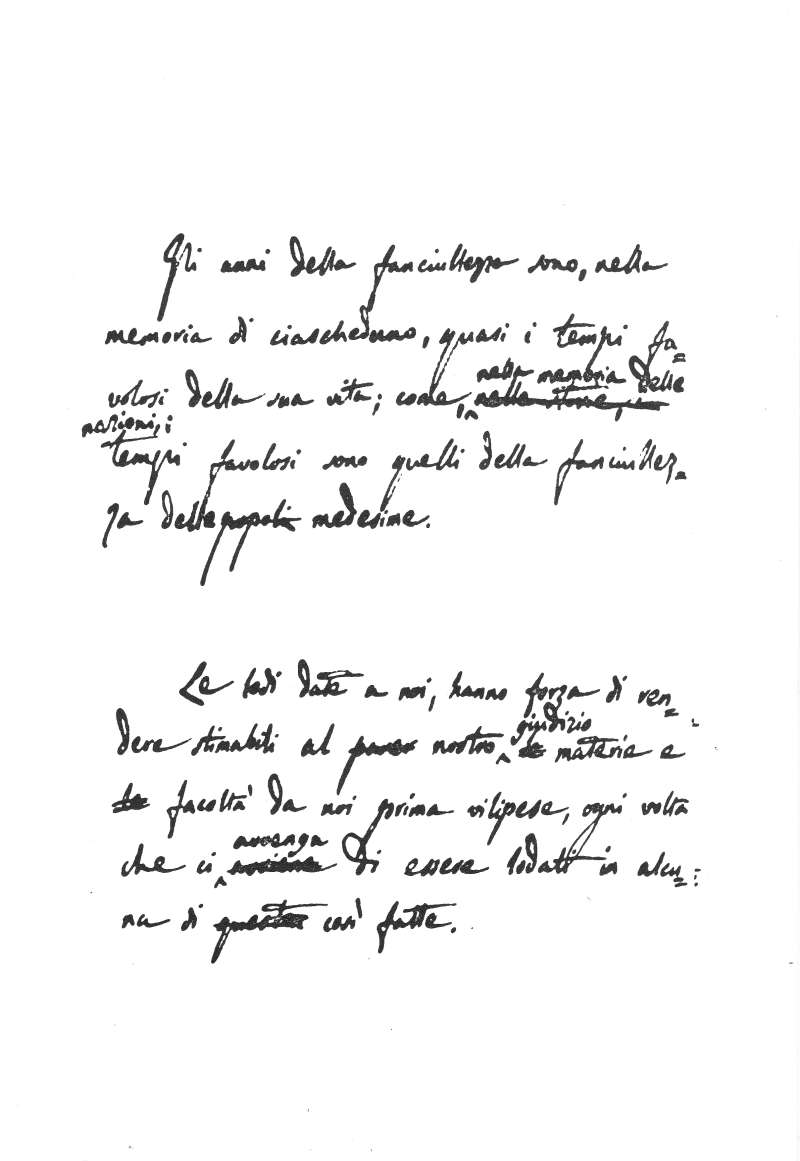 Gli anni della fanciullezza sono, nella
memoria di ciascheduno, quasi i tempi fa=
volosi della sua vita; come, nelle storie,
nella memoria delle
nazioni, i
tempi favolosi sono quelli della fanciullez=
za delle popoli medesime.
Le lodi date a noi, hanno forza di ren=
dere stimabili al parer nostro le materie e
giudizio
le facoltà da noi prima vilipese, ogni volta
avvenga
che ci avviene di essere lodati in alcu=
na di così fatte.